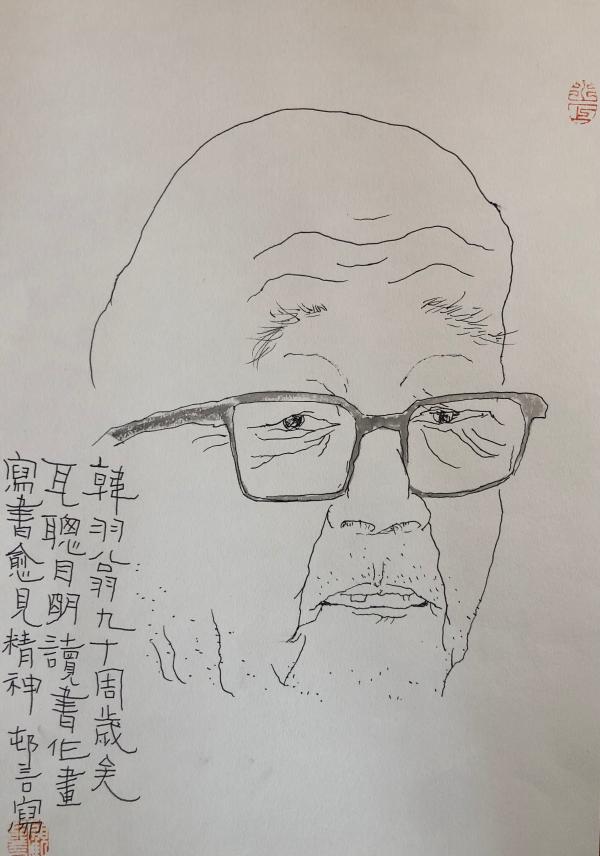 韓羽翁九十周歲矣
耳聰目明讀書作畫
寫書愈見精神 邨言寫